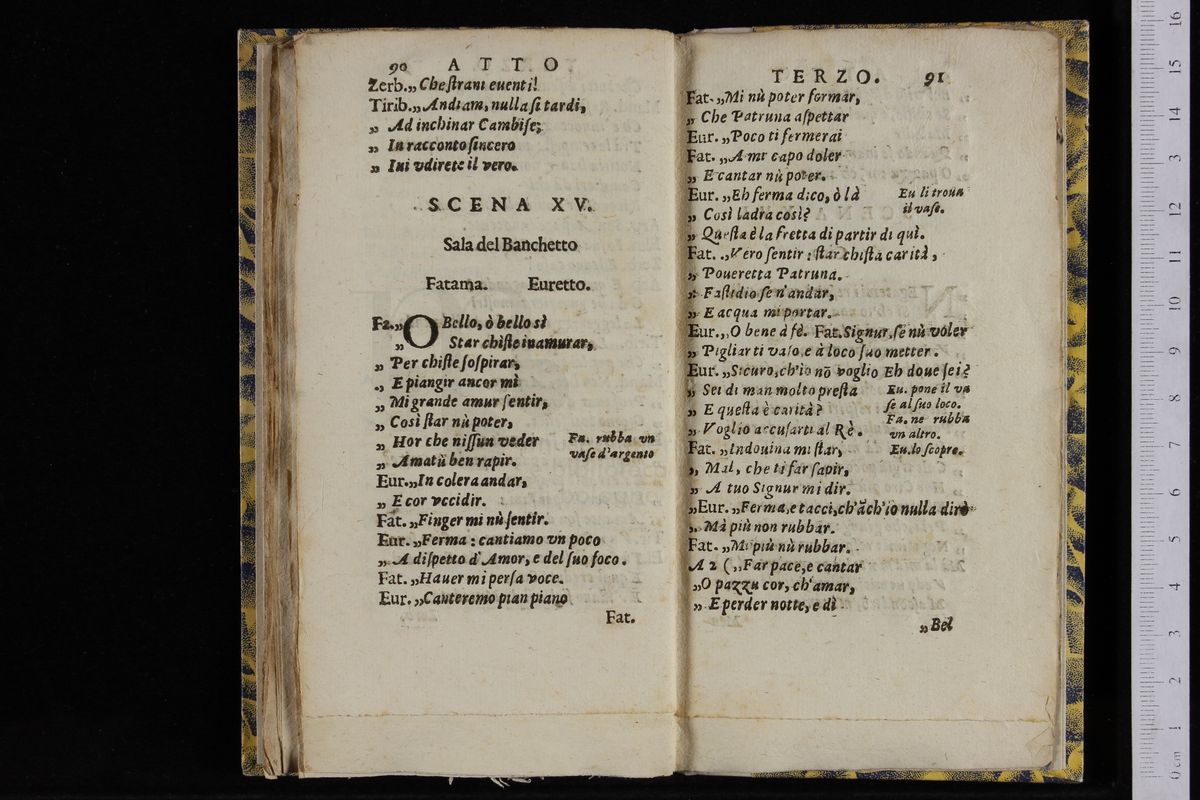 90 ATTO
Zerb.„ Che ſtrani euenti!
Tirib.„ Andiam, nulla ſi tardi,
„ Ad inchinar Cambiſe;
„ In racconto ſincero
„ Iui vdirete il vero.
SCENA XV.
Sala del Banchetto
Fatama. Euretto.
Fa.„ O Bello, ò bello sì
„ Star chiſte inamurar,
„ Per chiſte ſoſpirar,
„ E piangir ancor mì
„ Mi grande amur ſentir,
„ Così ſtar nù poter,
„ Hor che niſſun veder
Fa. rubba vn
vaſe d'argento
„ Amatù ben rapir.
Eur.„ In colera andar,
„ E cor vccidir.
Fat. „ Finger mi nù ſentir.
Eur. „ Ferma: cantiamo vn poco
„ A diſpetto d'Amor, e del ſuo foco.
Fat. „ Hauer mi perſa voce.
Eur. „ Canteremo pian piano
Fat.
TERZO. 91
Fat. „ Mi nù poter formar,
„ Che Patruna aſpettar
Eur. „ Poco ti fermerai
Fat. „ A mi capo doler
„ E cantar nù poter.
Eur. „ Eh ferma dico, ò là
Eu li troua
il vaſo.
„ Così ladra così?
„ Queſta è la fretta di partir di quì.
Fat. „ Vero ſentir: ſtar chiſta carità,
„ Poueretta Patruna.
„ Faſtidio ſe n'andar,
„ E acqua mi portar.
Eur. „ O bene à fè. Fat. Signur, ſe nù voler
„ Pigliarti vaſo, e à loco ſuo metter.
Eur. „ Sicuro, ch'io nõ voglio Eh doue ſei?
„ Sei di man molto preſta
Eu. pone il va
ſe al ſuo loco.
„ E queſta è carità?
Fa. ne rubba
vn altro.
„ Voglio accuſarti al Rè.
Fat. „ Indouina mi ſtar,
Eu. lo ſcopre.
„ Mal, che ti far ſapir,
„ A tuo Signur mi dir.
„ Eur. „ Ferma, e tacci, ch'ãch'io nulla dirò
„ Mà più non rubbar.
Fat. „ Mi più nù rubbar.
A 2 ( „ Far pace, e cantar
„ O pazzu cor, ch'amar,
„ E perder notte, e dì
„ Bel